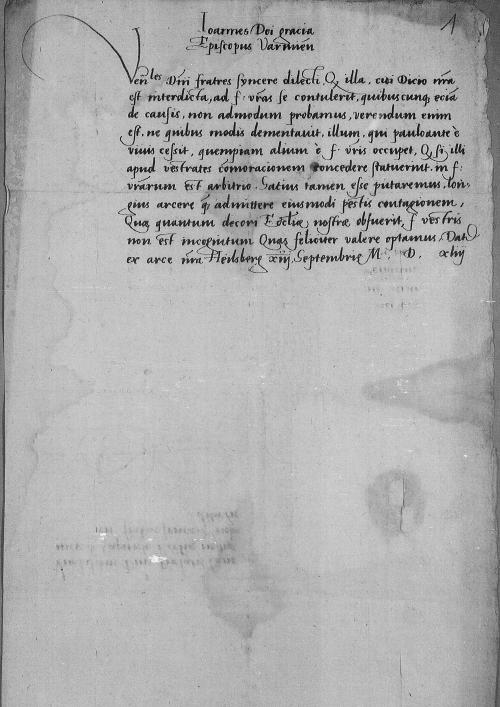 Ioannes Dei gracia
Episcopus Varmien
Ven les Dni fratres syncere dilecti. Q illa, cui Dicio nra
est interdicta, ad f. vras se contulerit, quibuscunq; eciā
de causis, non admodum probamus, verendum enim
est, ne quibus modis dementauit, illum, qui pauloante ē
viuis cessit, quempiam alium ē f. vris occupet, Q si illi
apud vestrates cōmoracionem concedere statuerint. in f.
vrarum est arbitrio. Satius tamen esse putaremus, lon-
gius arcere q̄ admittere eiusmodi pestis contagionem,
Quæ quantum decori Ecclīæ nostræ obfuerit, f. vestris
non est incognitum Quas feliciter valere optamus. Dat
ex arce nra Heilsberg xiij. Septembris M. D. xliij